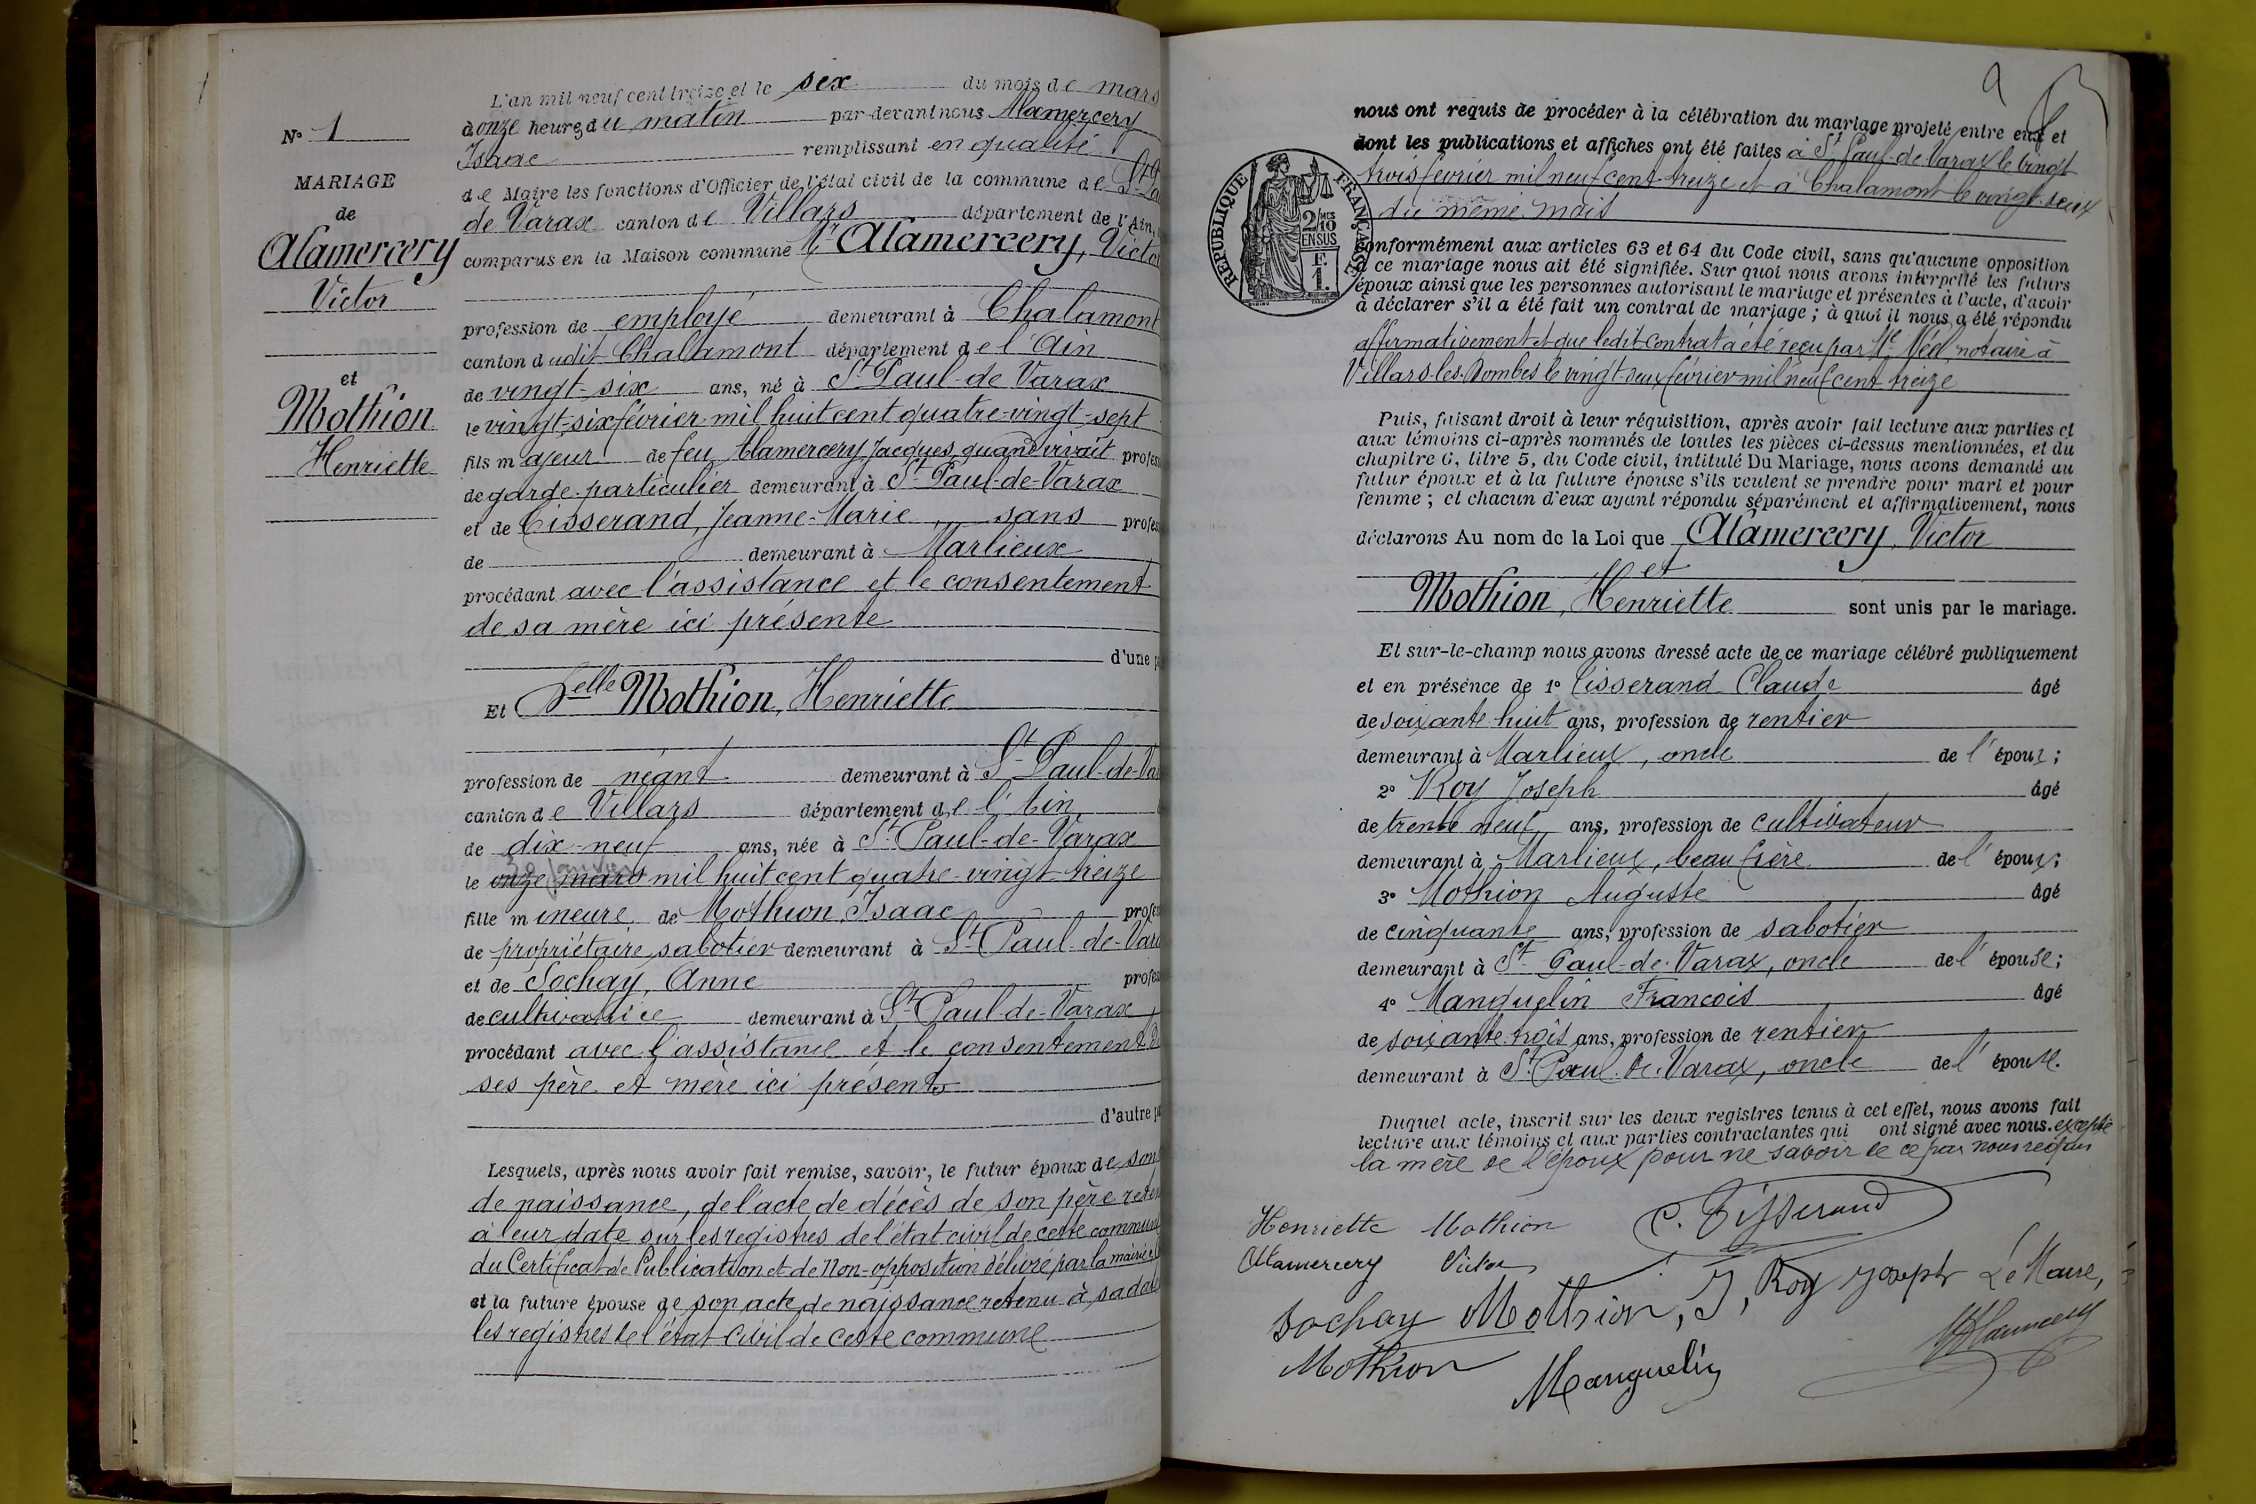 N° 1
MARIAGE
de
Alamercery
Victor
et
Mothion
Henriette
L'an mil neuf cent treize et le six du mois de mars
à onze heures du matin par devant nous Alamercery
Isaac remplissant en qualité
de Maire les fonctions d'Officier de l'état civil de la commune de St
de Varax canton de Villars département de l'Ain,
comparus en la Maison commune Mr Alamercery, Victor
profession de employé demeurant à Chalamont
canton dudit Chalamont département de l'Ain
de vingt-six ans, né à St Paul-de Varax
le vingt-six février mil huit cent quatre-vingt-sept
fils majeur de feu Alamercery Jacques, quand vivait profes
de garde-particulier demeurant à St Paul-de-Varax
et de Tisserand, Jeanne-Marie, sans profes
de demeurant à Marlieux
procédant avec l'assistance et le consentement
de sa mère ici présente
d'une p
Et Delle Mothion, Henriette
profession de néant demeurant à St Paul-de-Va
canton de Villars département de l'Ain
de dix-neuf ans, née à St Paul-de-Varax
30 janvier
le onze mars mil huit cent quatre-vingt treize
fille mineure de Mothion, Isaac profes
de propriétaire sabotier demeurant à St Paul-de-Vara
et de Sochay, Anne profes
de cultivatrice demeurant à St Paul-de-Varax
procédant avec l'assistance et le consentement de
ses père et mère ici présents
d'autre pa
Lesquels, après nous avoir fait remise, savoir, le futur époux de son
de naissance, de l'acte de décès de son père reten
à leur date sur les registres de l'état civil de cette commune
du Certificat de Publication et de Non-opposition délivré par la mairie
et la future épouse de son acte de naissance retenu à sa date
les registres de l'état civil de cette commune
nous ont requis de procéder à la célébration du mariage projeté entre eux et
dont les publications et affiches ont été faites à St Paul-de Varax le vingt
trois février mil neuf cent treize et à Chalamont le vingt-deux
du même mois
RÉPUBLIQUE FRANÇAISE
2/10 MES
EN SUS
F.
1.
conformément aux articles 63 et 64 du Code civil, sans qu'aucune opposition
à ce mariage nous ait été signifiée. Sur quoi nous avons interpellé les futurs
époux ainsi que les personnes autorisant le mariage et présentes à l'acte, d'avoir
à déclarer s'il a été fait un contrat de mariage ; à quoi il nous a été répondu
affirmativement et que ledit contrat a été reçu par Me Néel notaire à
Villars-les-Dombes le vingt-deux février mil neuf cent treize
Puis, faisant droit à leur réquisition, après avoir fait lecture aux parties et
aux témoins ci-après nommés de toutes les pièces ci-dessus mentionnées, et du
chapitre 6, titre 5, du Code civil, intitulé Du Mariage, nous avons demandé au
futur époux et à la future épouse s'ils veulent se prendre pour mari et pour
femme ; et chacun d'eux ayant répondu séparément et affirmativement, nous
déclarons Au nom de la Loi que Alamercery, Victor
et
Mothion, Henriette sont unis par le mariage.
Et sur-le-champ nous avons dressé acte de ce mariage célébré publiquement
et en présence de 1° Tisserand Claude âgé
de soixante huit ans, profession de rentier
demeurant à Marlieux, oncle de l'époux ;
2° Roy Joseph âgé
de trente neuf ans, profession de cultivateur
demeurant à Marlieux, beau frère de l'époux ;
3° Mothion Auguste âgé
de cinquante ans, profession de sabotier
demeurant à St Paul-de-Varax, oncle de l'épouse ;
4° Manguelin François âgé
de soixante-trois ans, profession de rentier
demeurant à St Paul-de-Varax, oncle de l'épouse.
Duquel acte, inscrit sur les deux registres tenus à cet effet, nous avons fait
lecture aux témoins et aux parties contractantes qui ont signé avec nous. excepté
la mère de l'époux pour ne savoir de ce par nous requis
Henriette Mothion C. Tisserand
Alamercery Victor
Sochay Mothion, J, Roy Joseph Le Maire,
Mothion Manguelin Alamercery